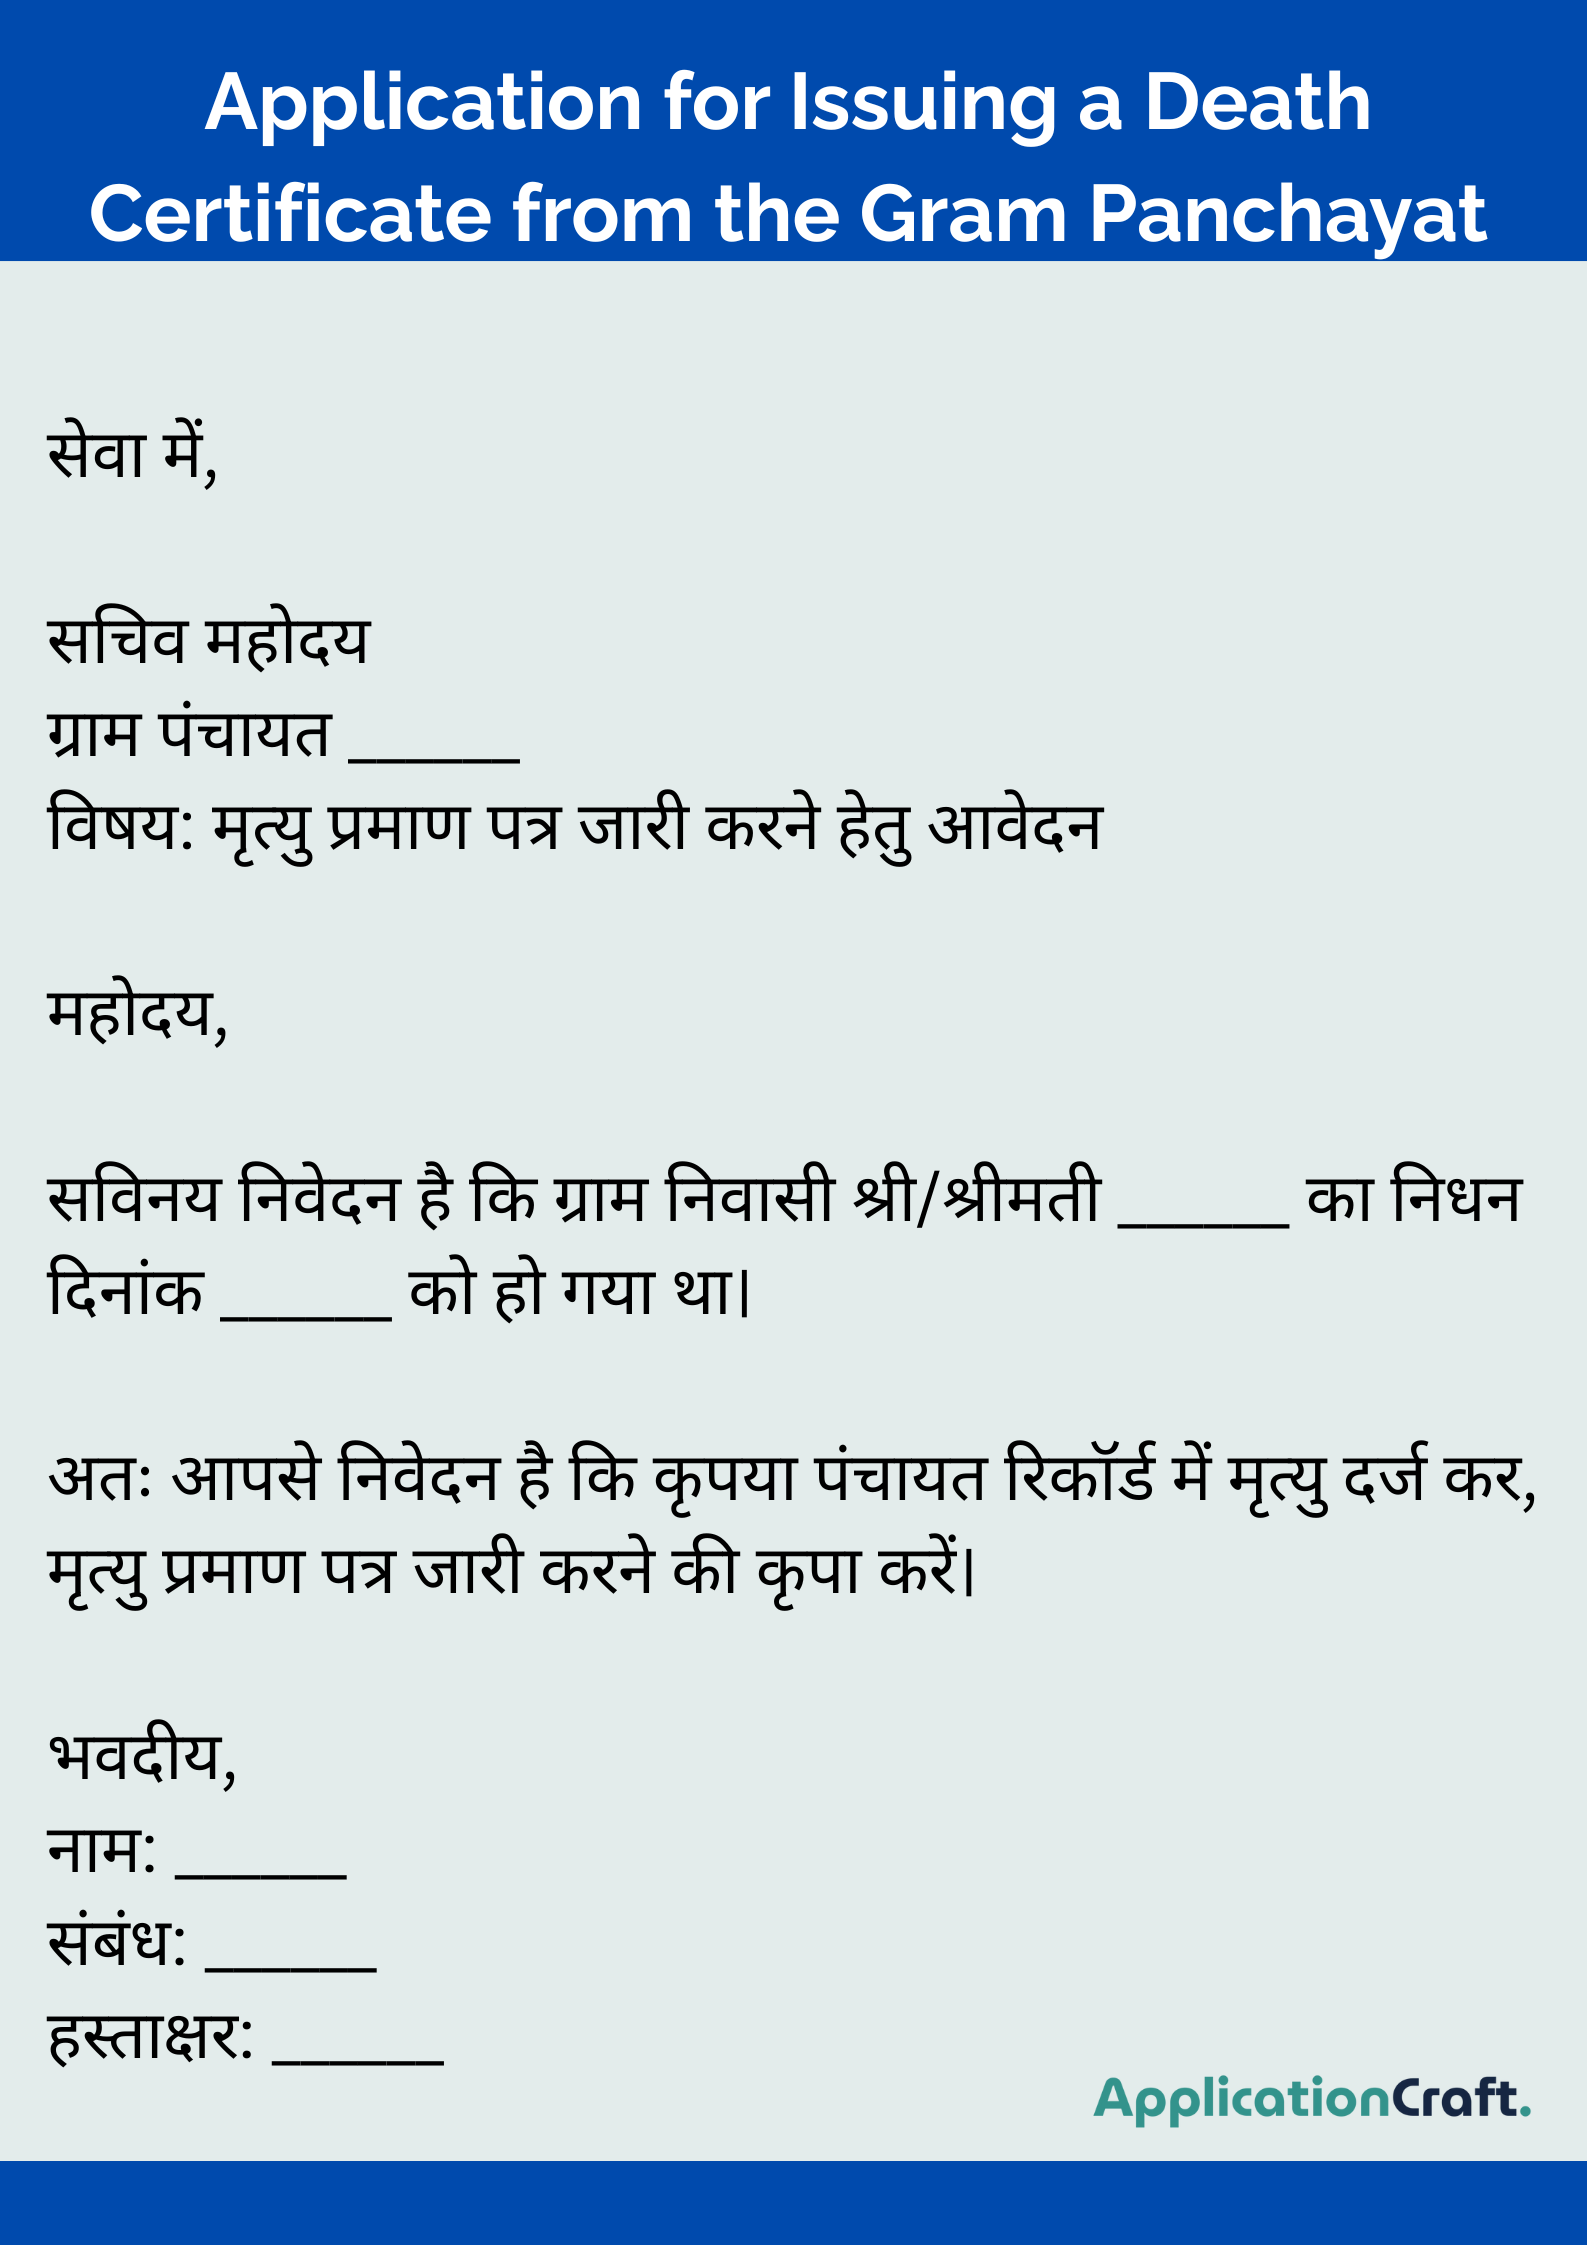 Application for Issuing a Death
Certificate from the Gram Panchayat
सेवा में,
सचिव महोदय
ग्राम पंचायत ______
विषय: मृत्यु प्रमाण पत्र जारी करने हेतु आवेदन
महोदय,
सविनय निवेदन है कि ग्राम निवासी श्री/श्रीमती ______ का निधन
दिनांक ______ को हो गया था।
अतः आपसे निवेदन है कि कृपया पंचायत रिकॉर्ड में मृत्यु दर्ज कर,
मृत्यु प्रमाण पत्र जारी करने की कृपा करें।
भवदीय,
नाम: ______
संबंध: ______
हस्ताक्षर: ______
ApplicationCraft.